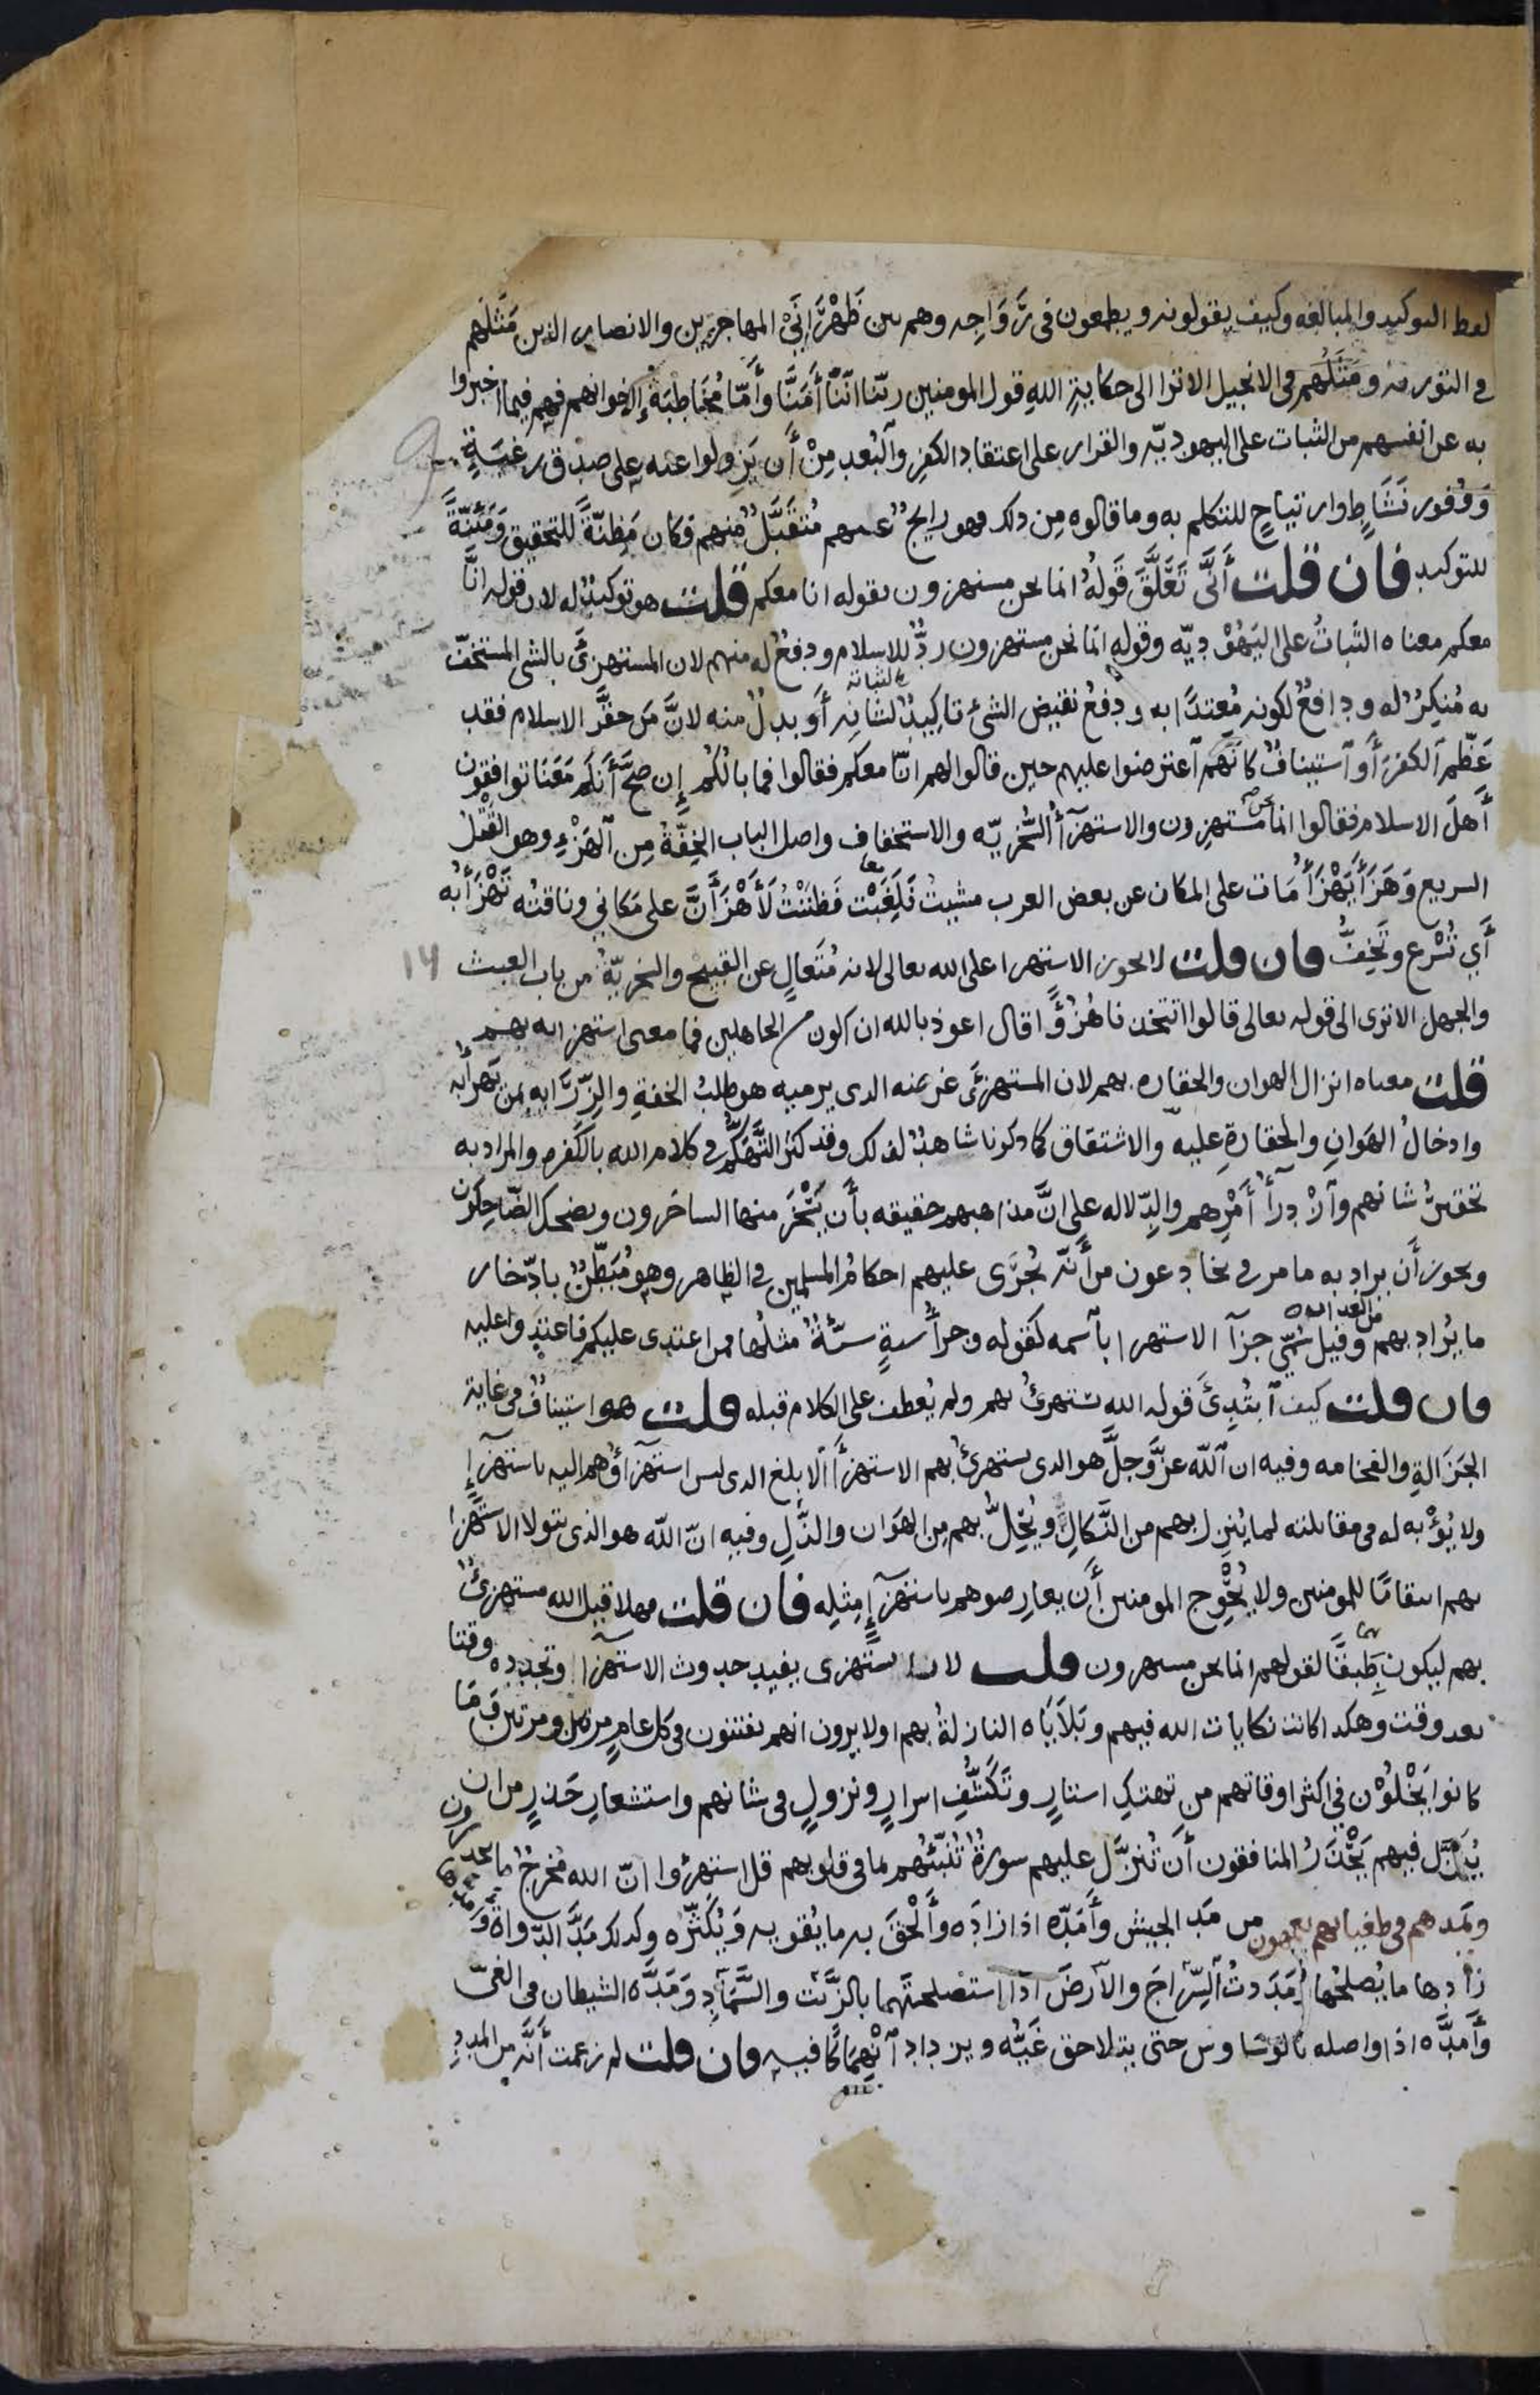 لفظ التوكيد والمبالغه وكيف يقولونه ويطمعون في رَوَاجِه وهم بين ظَهْرَانَيْ المهاجرين والانصار الذين مَثَلُهم
في التوريه ومَثَلُهم في الانجيل الا ترا الى حكايةِ اللهِ قول المومنين ربّنا انّنا أَمَنَّا وأَمّا مُخَاطبَةُ إِخوانهم فهم فيما اخبروا
به عن انفسهم من الثبات على اليهوديّه والقرار على اعتقاد الكفرِ والبُعدِ مِنْ أَن يَزِولوا عنه على صدق رغبَةٍ
وَوُفور نَشَاطٍ وارتياحٍ للتكلم به وما قالوه مِن ذلك فهو رايجٌ عنهم مُتَقَبَّلٌ منهم فكان مَظِنّةً للتحقيق وَمَئنّةً
للتوكيد فان قلت أَنَّى تَعَلَّقَ قَولُهُ انما نحن مستهزون بقوله انا معكم قلت هو توكيدٌ له لان قوله انَّا
معكم معناه الثباتُ على اليَهُوْدِيّه وقوله انّما نحن مستهزون ردٌّ للاسلام ودفعٌ له منهم لان المستهزئَ بالشي المستخفّ
به مُنكِرٌ له ودافعٌ لكونه مُعتدًا به ودفعُ نقيض الشئ تاكِيدٌ لثباته أَو بدلٌ منه لانَّ مَن حقَّرَ الاسلام فقد
عَظّم الكفرَ أَو آستينافٌ كانّهم آعترضوا عليهم حين قالوا لهم انّا معكم فقالوا فما بالُكُم إِن صَحَّ أَنكم مَعَنا توافقون
أَهلَ الاسلام فقالوا انما نحن مستهزون والاستهزآءُ السُّخريّه والاستخفاف واصل الباب الخِفّةُ مِن الهَزْءِ وهو القَتْلُ
السريع وَهَزَأَ يَهْزَأُ مَات على المكان عن بعض العرب مشيتُ فَلَغَبْت فَظَنَنْتُ لَأَهْزَأَنَّ على مَكاني وناقتُه تَهْزَأُ به
أَي تُسْرع وتَخِفُّ فان قلت لا يجوز الاستهزا على الله تعالى لانه مُتَعالٍ عن القبيح والسخريّةُ من باب العبث
والجهل الا ترى الى قوله تعالى قالوا اتتخذنا هُزُؤًا قال اعوذ بالله ان اكون من الجاهلين فما معنى استهزايه بهم
قلت معناه انزال الهوان والحقاره بهم لان المستهزئَ غرضه الذى يرميه هو طلبُ الخفةِ والزّرَايه بمن يَهزأُ به
وادخالُ الهَوانِ والحقارةِ عليه والاشتقاق كما ذكرنا شاهدٌ لذلك وقد كثُر التَّهَكُّم في كلام الله بالكَفره والمراد به
تحقيرُ شانهم وآزْدِرآءُ أَمْرِهم والدِّلاله على انَّ مذاهبهم حقيقه بأَن يَسْخَرَ منها الساخرون ويضحك الضّاحِكون
ويجوز أَن يراد به ما مر في يخادعون من أَنّه يُجْرَى عليهم احكامُ المسلمين في الظاهر وهو مُبَطِّنٌ بادّخار
ما يُراد بهم وقيل سُمّي جزآ الاستهزا بآسمه كقوله وجزأُ سيةٍ سيّئةٌ مثلُها فمن اعتدى عليكم فاعتدوا عليه
فان قلت كيف آبتُدِئَ قوله الله يستهزئُ بهم ولم يُعطف على الكلام قبله قلت هو استينافٌ في غاية
الجَزَالةِ والفخامه وفيه ان الله عزَّ وجلَّ هو الذى يستهزئُ بهم الاستهزآءَ الابلغ الذى ليس استهزآؤُهم اليه باستهزآءٍ
ولا يُؤْبه له في مقابلته لما يُنزِل بهم من النَّكالِ ويُحِلُّ بهم مِن الهَوَان والذُّلِ وفيه انّ الله هو الذى يتولا الاستهزا
بهم انتقامًا للمومنين ولا يُحْوِج المومنين أَن يعارِضوهم باستهزآءٍ مِثلِه فان قلت فهلا قيل الله مستهزئٌ
بهم ليكون طَبَقًا لقولهم انما نحن مستهزون قلت لان يستهزى يفيد حدوث الاستهزآ وتجدده وقتا
بعد وقت وهكذا كانت نكايات الله فيهم وبَلَايَاه النازلةُ بهم اولا يرون انهم يفتنون في كل عامٍ مرة او مرتين وَمَا
كانوا يَخْلُوْن في اكثر اوقاتهم من تهتكِ استارٍ وتَكَشُّفِ اسرارٍ ونزولٍ في شانهم واستشعارِ حَذرٍ من ان
يُنَزَّل فيهم يَحْذَرُ المنافقون أَن تُنزَّل عليهم سورةٌ تُنبّئُهم بما في قلوبهم قل استهزؤا انّ الله مُخرجٌ ما تحذرون
ويمدهم في طغيانهم يعمهون من مَدّ الجيش وأَمَدّه اذا زادَه وأَلْحَقَ به ما يُقويه وَيُكَثِّرُه وكذلك مَدَّ الدّواةَ وَ
زادها ما يُصلحُها ومَدَدتُ السِّرَاجَ والأرضَ اذا استصلحتهما بالزَّيت والسَّمَادِ وَمَدَّه الشيطان في الغيّ
وأَمدَّه اذا واصله بالوساوس حتى يتلاحق غَيُّه ويزداد آنْهِمَاكًا فيه فان قلت لم زعمت أَنّه من المددِ